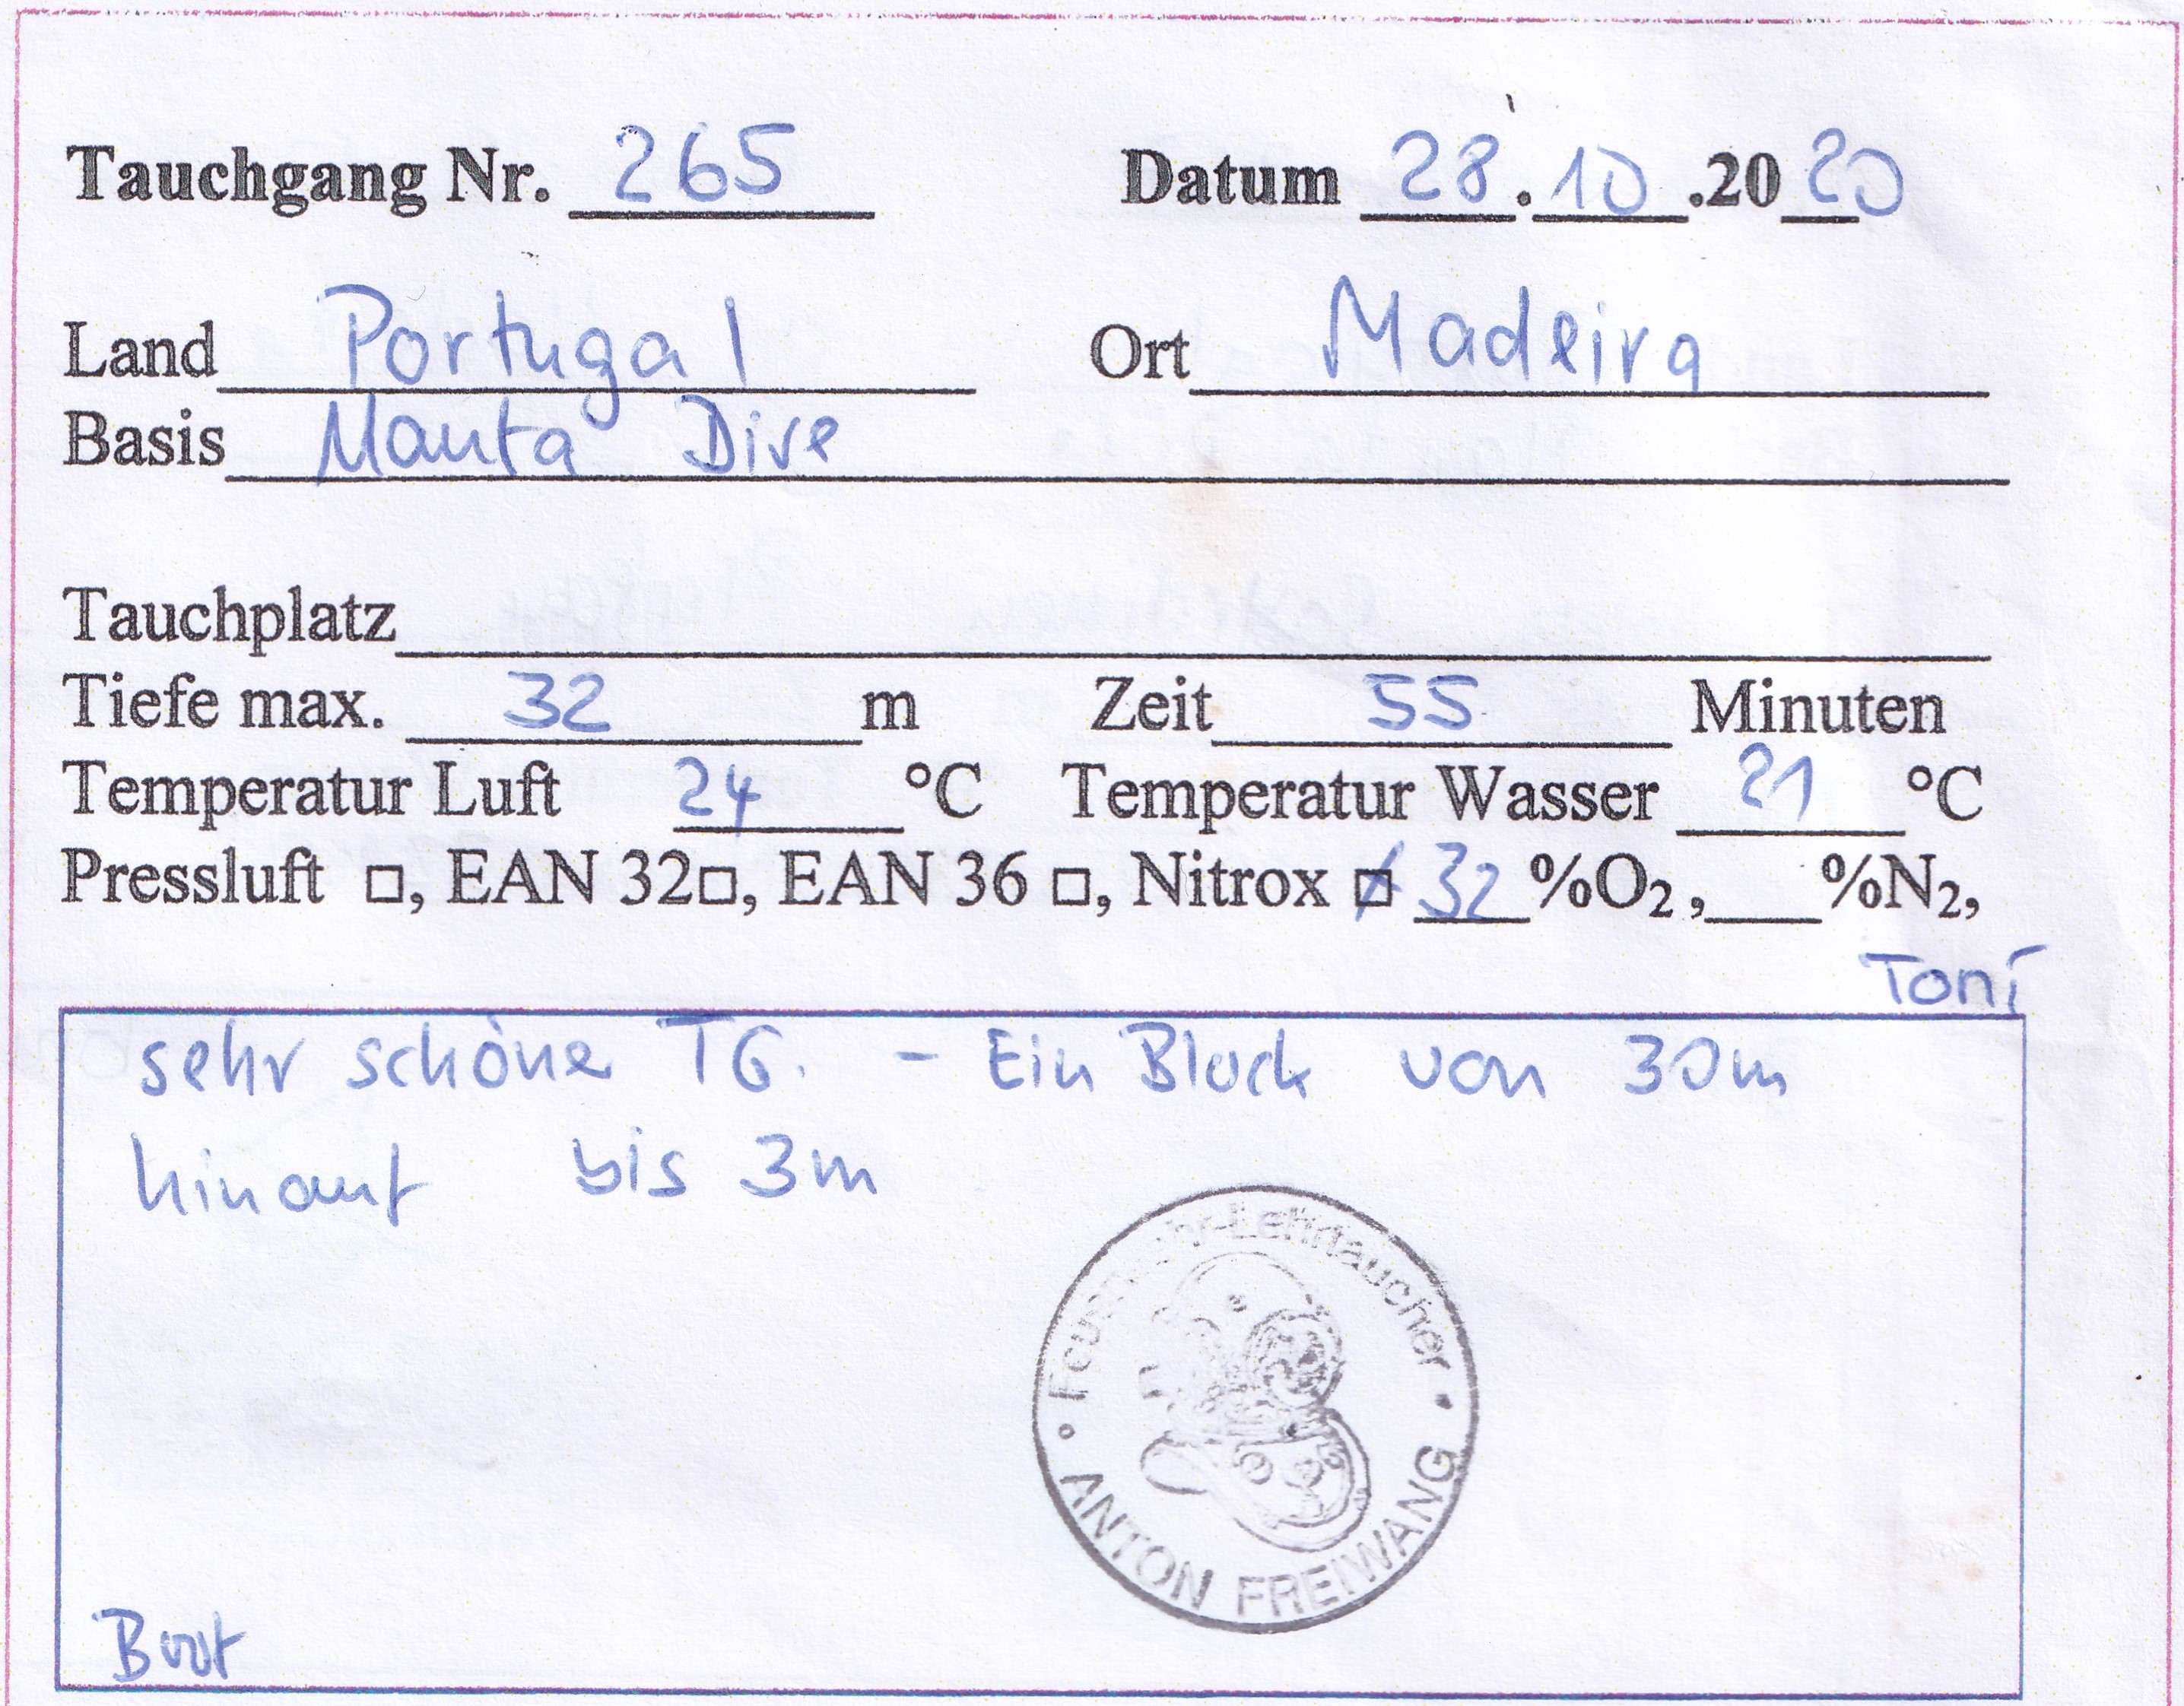 Tauchgang Nr. 265 Datum 28.10.2020
Land Portugal Ort Madeira
Basis Manta Dive
Tauchplatz
Tiefe max. 32 m Zeit 55 Minuten
Temperatur Luft 24 °C Temperatur Wasser 21 °C
Pressluft □, EAN 32□, EAN 36 □, Nitrox ☒ 32 %O₂, %N₂,
Toni
sehr schöne TG. - Ein Block von 30m
hinauf bis 3m
Feuerwehr-Lehrtaucher
ANTON FREIWANG
Boot